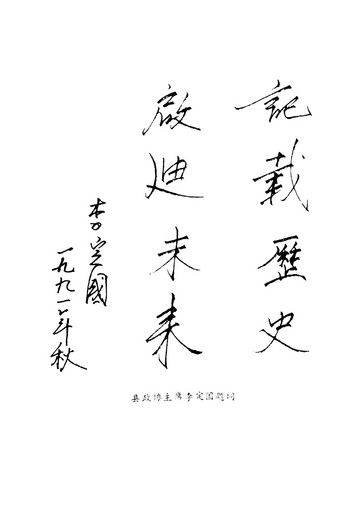 記載歷史
啟迪未来
李定國
一九九一年秋
县政协主席李定国题词